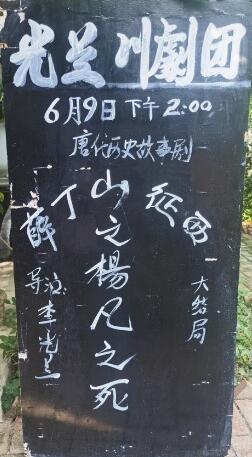 光兰川劇团
6月9日下午2:00
唐代历史故事剧
薛丁山征西
之楊凡之死
大结局
导演:李光兰